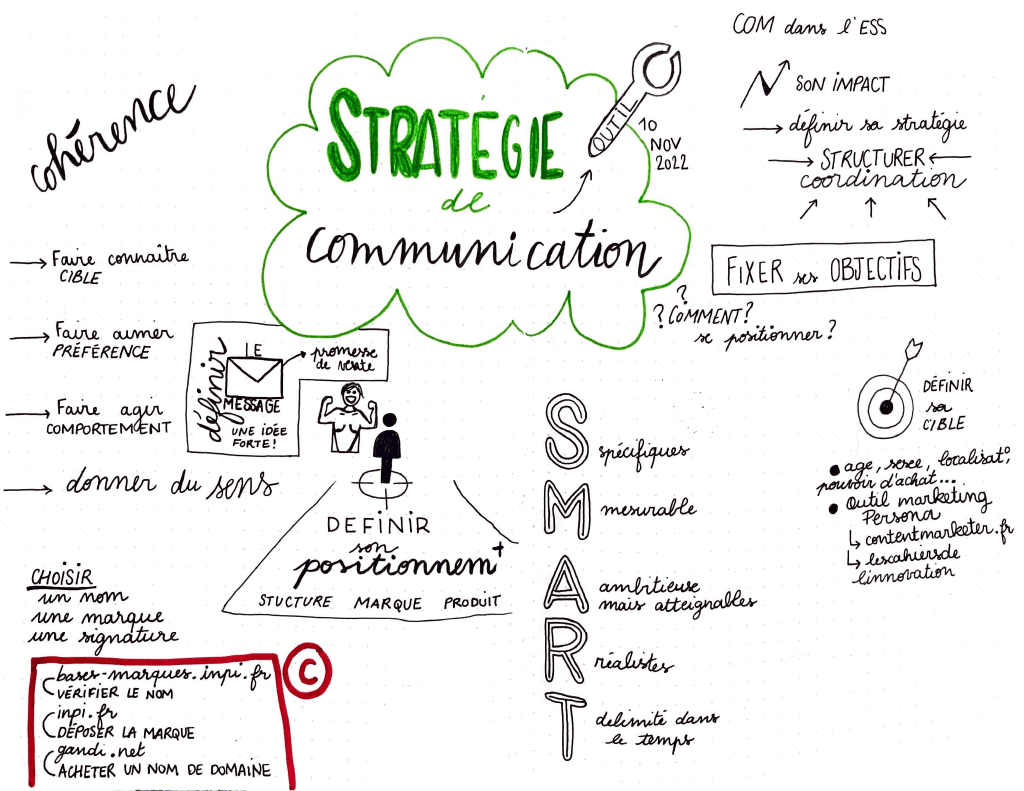 STRATÉGIE
de
communication
OUTIL
10
NOV
2022
cohérence
→ Faire connaître
CIBLE
→ Faire aimer
PRÉFÉRENCE
→ Faire agir
COMPORTEMENT
→ donner du sens
définir
LE
MESSAGE
→ promesse
de vente
UNE IDÉE
FORTE!
DEFINIR
son
positionnem+
STUCTURE MARQUE PRODUIT
CHOISIR
un nom
une marque
une signature
bases-marques.inpi.fr
VÉRIFIER LE NOM
inpi.fr
DÉPOSER LA MARQUE
gandi.net
ACHETER UN NOM DE DOMAINE
C
COM dans l'ESS
SON IMPACT
→ définir sa stratégie
→ STRUCTURER ←
coordination
FIXER ses OBJECTIFS
?
? COMMENT?
se positionner?
S spécifiques
M mesurable
A ambitieuse
mais atteignables
R réalistes
T delimité dans
le temps
DÉFINIR
sa
CIBLE
● age, sexe, localisat°,
pouvoir d'achat...
● Outil marketing
Persona
↳ contentmarketer.fr
↳ lescahiersde
linnovation